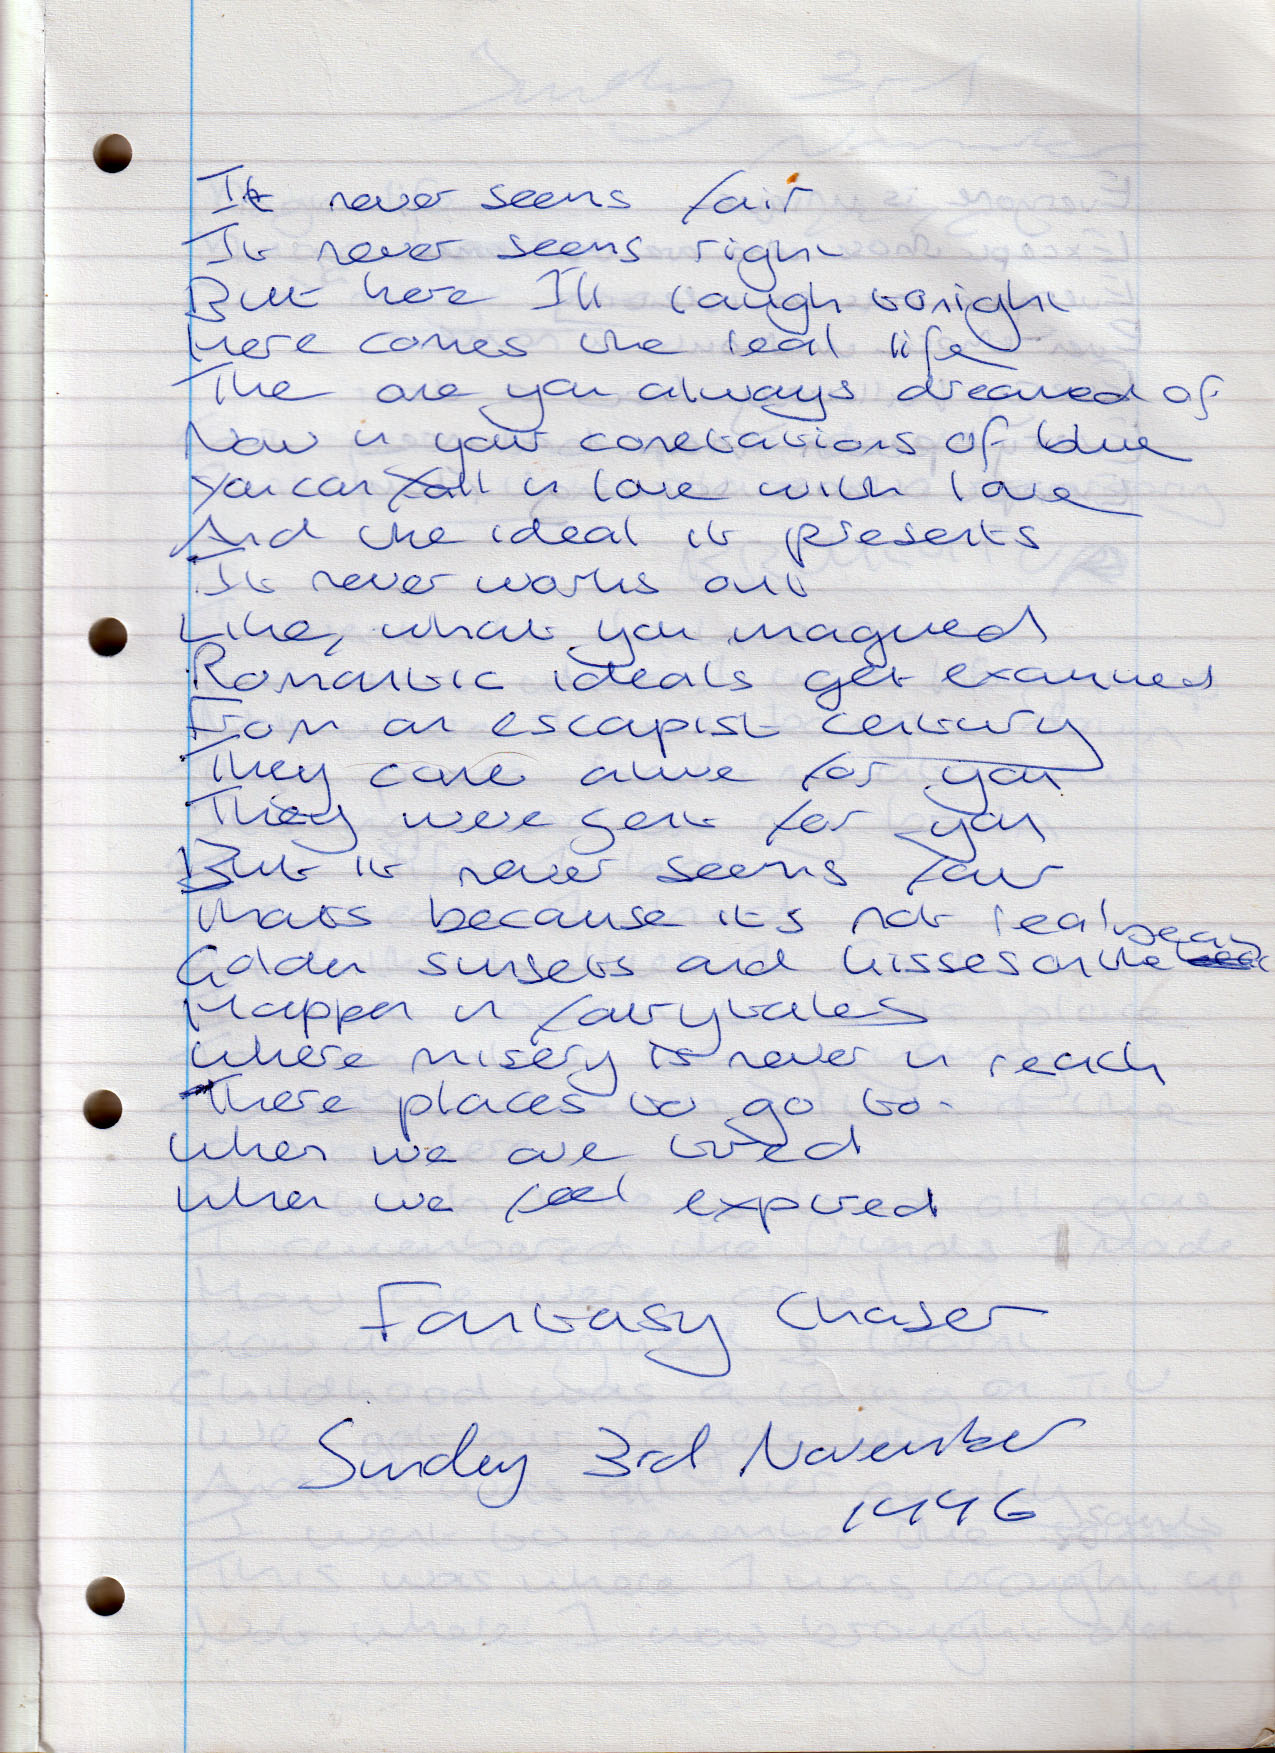 It never seems fair
It never seems right
But here I'll laugh tonight
Here comes the real life
The one you always dreamed of
Now in your conetations of blue
You can fall in love with love
And the ideal it presents
It never works out
Like, what you imagined
Romantic ideals get examined
From an escapist century
They come alive for you
They were sent for you
But it never seems fair
Thats because it's not real
Golden sunsets and kisses on the beach
Happen in fairytales
Where misery is never in reach
There places to go to.
When we are tired
When we feel expired
Fantasy Chaser
Sunday 3rd November
1996